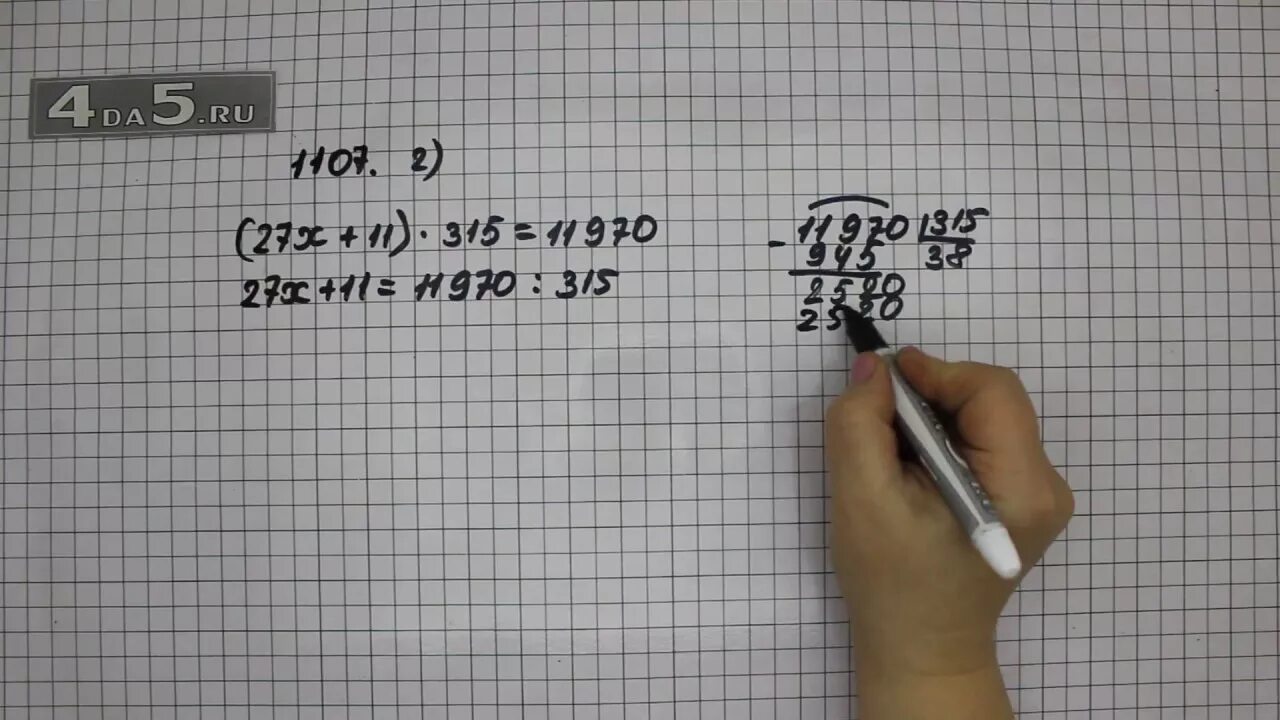 4DA5.RU
1107. 2)
(27x + 11) · 315 = 11970
27x + 11 = 11970 : 315
11970 315
- 945 38
2520
252